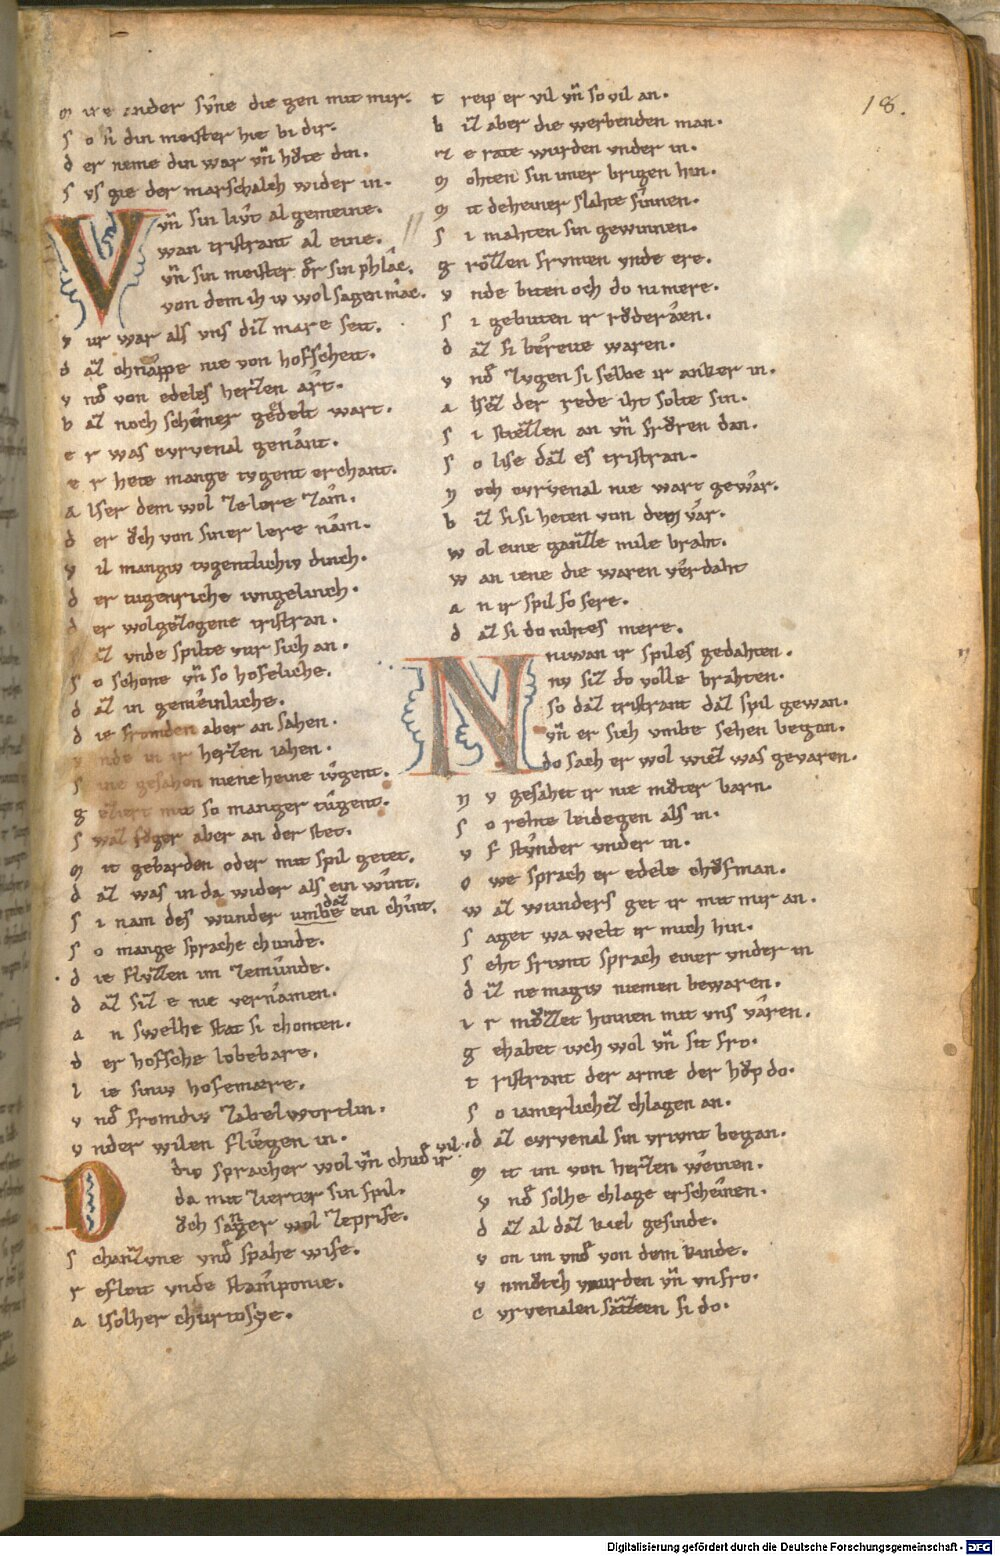 18.
m ire ander sv̂ne die gen mit mir.
s o si din meister hie bi dir.
d er neme din war vn̄ hv̊te din.
s vs gie der marschalch wider in.
Vn̄ sin livt al gemeine.
wan tristrant al eine.
vn̄ sin meister d̕r sin phlac.
von dem ih iv wol sagen mac.
v ur war als vns diz mære seit.
d az chnappe nie von hofscheit.
v nd̕ von edeles herzen art.
b az noch schener gedelt wart.
e r was cvrvenal genant.
e r hete mange tvgent erchant.
a lser dem wol ze lere zam.
d er ǒch von siner lere nam.
v il mangiv tvgentlichiv dinch.
d er tugenriche iungelinch.
d er wolgezogene tristran.
s az vnde spilte vur sich an.
s o schone vn̄ so hofsliche.
d az in gemeinliche.
d ie fromden aber an sahen.
v nde in ir herzen iahen.
s ine gesahen niene heine ivgent.
g eziert mit so manger tugent.
s waz fv̊ger aber an der stet.
m it gebarden oder mit spil getet.
d az was in da wider als ein wint.
s i nam des wunder umbe daz ein chint.
s o mange sprache chunde.
d ie flvzzen im zemunde.
d az siz e nie vernamen.
a n swelhe stat si chomen.
d er hofsche lobebære.
l ie siniv hofemære.
v nd̕ fromdiv zabelwortlin.
v nder wilen fliegen in.
Div spracher wol vn̄ chud̕ ir vil.
da mit zierter sin spil.
ǒch sanger wol zeprise.
s chanzvne vnd̕ spahe wise.
r efloit vnde stamponie.
a lsolher churtosye.
t reip er vil vn̄ so vil an.
b iz aber die werbenden man.
z e rate wurden vnder in.
m ohten sin imer brigen hin.
m it deheiner slahte sinnen.
s i mahten sin gewinnen.
g rozzen frvmen vnde ere.
v nde biten och do nimere.
s i gebuten ir rv̊deræren.
d az si bereite waren.
v nd̕ zvgen si selbe ir anker in.
a lsez der rede iht solte sin.
s i stiezzen an vn̄ fv̊ren dan.
s o lise daz es tristran.
n och cvrvenal nie wart gewar.
b iz si si heten von dem var.
w ol eine ganzze mile braht.
w an iene die waren verdaht
a n ir spil so sere.
d az si do nihtes mere.
Niuwan ir spiles gedahten.
nv siz do volle brahten.
so daz tristrant daz spil gewan.
vn̄ er sich vmbe sehen began.
do sach er wol wiez was gevaren.
n v gesahet ir nie mv̊ter barn.
s o rehte leidegen als in.
v f stv̊nder vnder in.
o we sprach er edele chǒfman.
w az wunders get ir mit mir an.
s aget wa welt ir mich hin.
s eht frivnt sprach einer vnder in
d iz ne magiv niemen bewaren.
i r mv̊zzet hinnen mit vns varen.
g ehabet ivch wol vn̄ sit fro.
t ristrant der arme der hv̊p do.
s o iamerlichez chlagen an.
d az cvrvenal sin vrivnt began.
m it im von herzen weinen.
v nd̕ solhe chlage erscheinen.
d az al daz kiel gesinde.
v on im vnd̕ von dem kinde.
v nmv̊tch wurden vn̄ vnfro.
c vrvenalen sazzten si do.
Digitalisierung gefördert durch die Deutsche Forschungsgemeinschaft - DFG